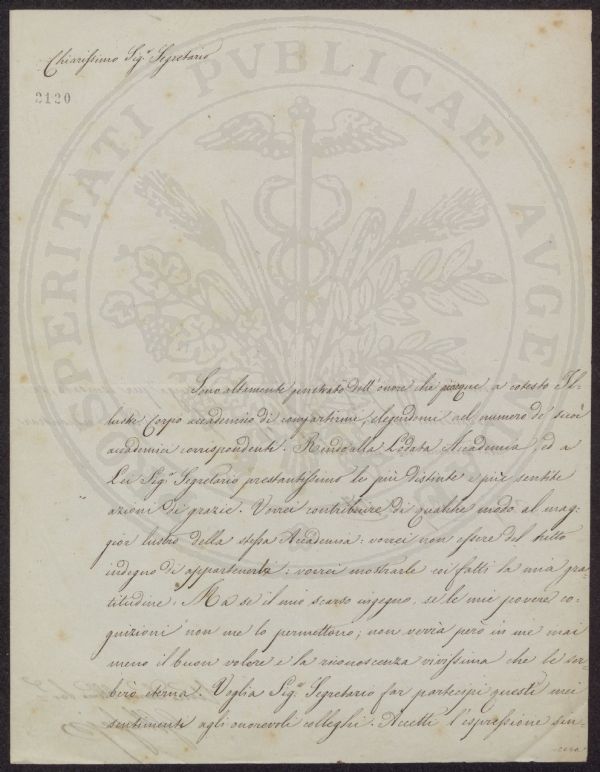 Chiarissimo Sig.r Segretario
2120
PROSPERITATI PVBLICAE AVGEN
Sono altamente penetrato dell'onore che piacque a cotesto Il-
lustre Corpo accademico di compartirmi, eleggendomi nel numero de' suoi
accademici corrispondenti. Rendo alla Lodata Accademia, ed a
Lei Sig.r Segretario prestantissimo le più distinte e più sentite
azioni di grazie. Vorrei contribuire di qualche modo al mag-
gior lustro della stessa Accademia: vorrei non essere del tutto
indegno di appartenerle: vorrei mostrarle coi fatti la mia gra-
titudine. Ma se il mio scarso ingegno, se le mie povere co-
gnizioni non me lo permettono; non verrà però in me mai
meno il buon volere e la riconoscenza vivissima che le ser-
berò eterna. Voglia Sig.r Segretario far partecipi questi miei
sentimenti agli onorevoli colleghi. Accetti l'espressione sin-
cera